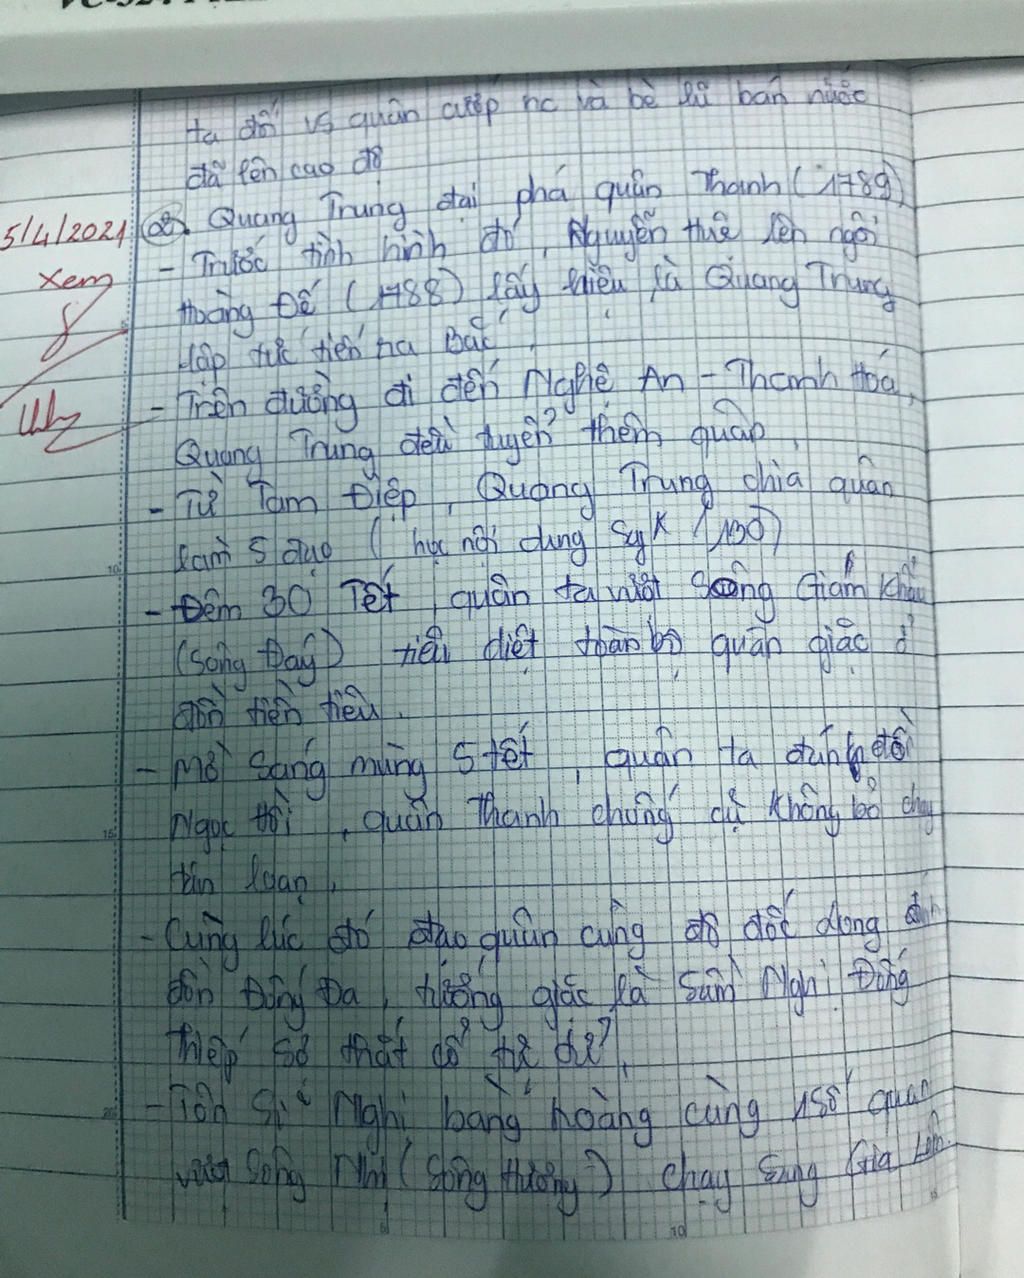 ta đối vs quân cướp nc và bè lũ bán nước
đã lên cao độ
5/4/2021
Xem
8
2. Quang Trung đại phá quân Thanh (1789)
- Trước tình hình đó, Nguyễn Huệ lên ngôi
Hoàng Đế (1788) lấy hiệu là Quang Trung
lập tức tiến ra Bắc.
- Trên đường đi đến Nghệ An - Thanh Hoá,
Quang Trung đều tuyển thêm quân,
- Từ Tam Điệp, Quang Trung chia quân
làm 5 đạo ( học nội dung SgK (130)
- Đêm 30 Tết, quân ta vượt sông Gián Khẩu
(sông Đáy) tiêu diệt toàn bộ quân giặc ở
đồn tiền tiêu.
- Mờ sáng mùng 5 tết, quân ta đánh đồn
Ngọc Hồi, quân Thanh chống cự không bỏ chạy
tán loạn,
- Cùng lúc đó đạo quân cùng đô đốc dong đánh
đồn Đống Đa, tướng giặc là Sầm Nghi Đống
Thiếp sợ thắt cổ tự tử,
- Tôn Sĩ Nghị bàng hoàng cùng 1 số quan
vượt sông Nhị (Sông Hương) chạy sang Gia Lâm.